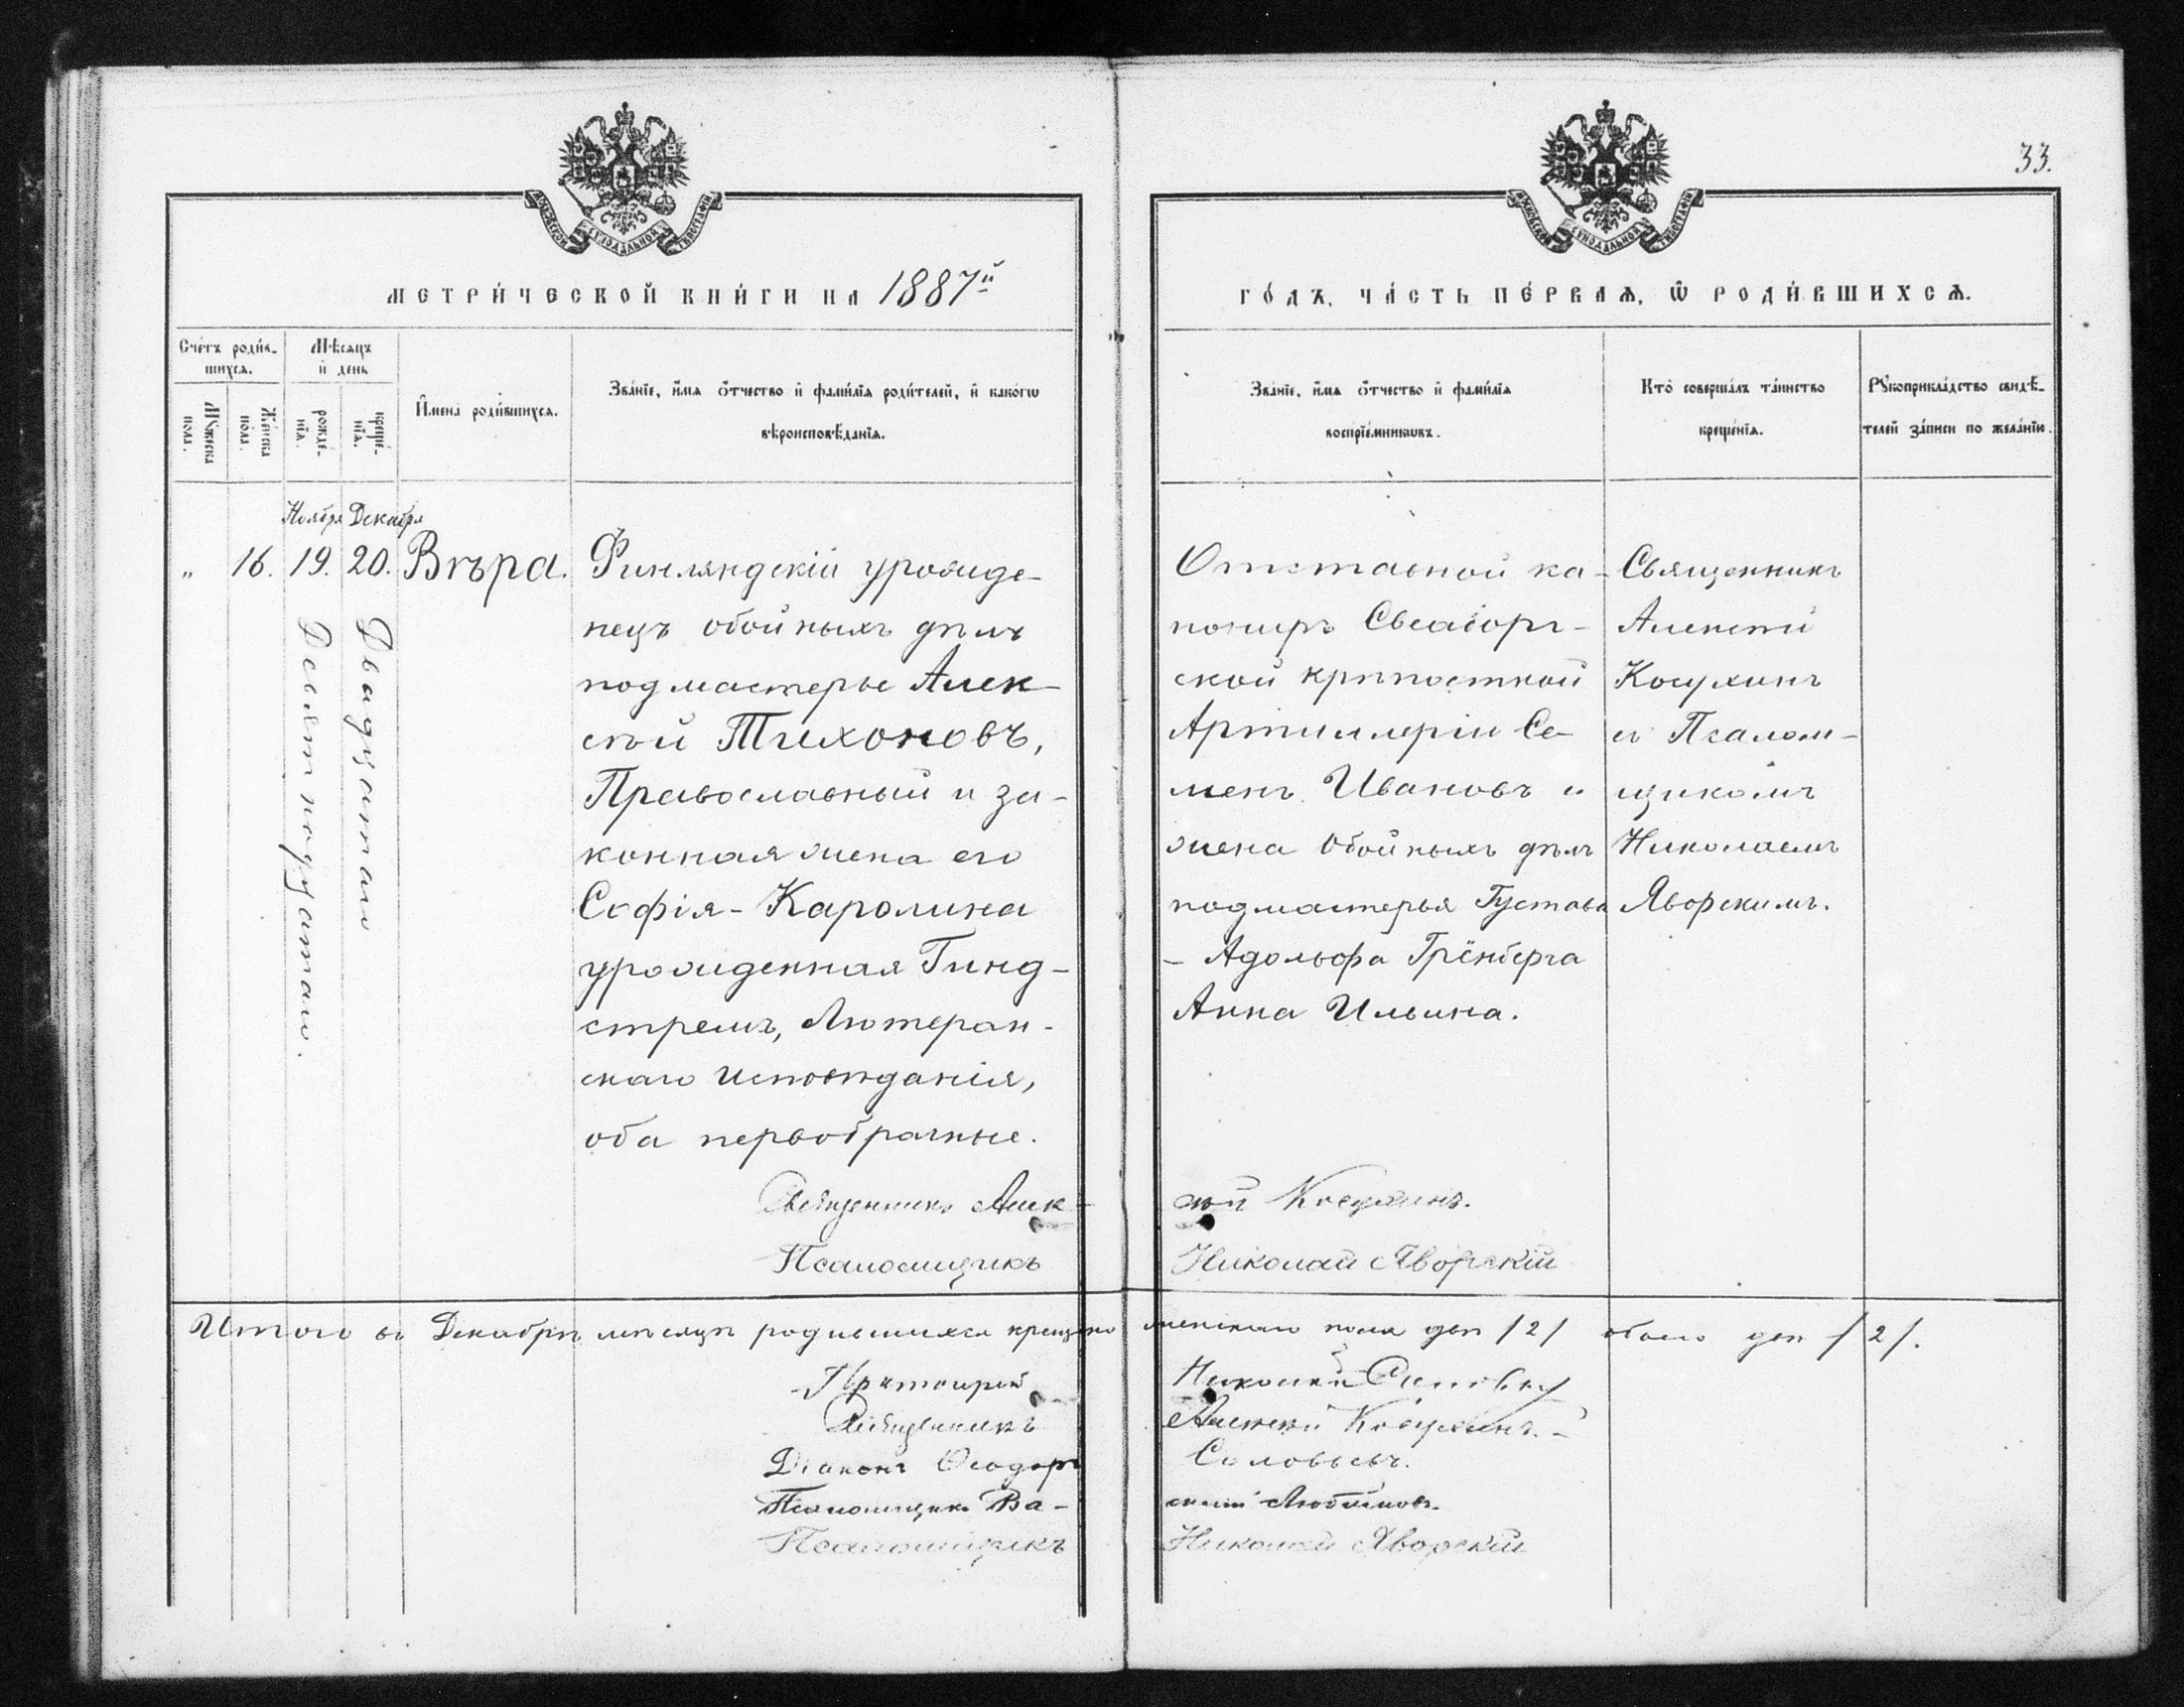 33.
МЕТРИ́ЧЕСКОЙ КНИ́ГИ НА 1887й
ГО́ДЪ, ЧА́СТЬ ПЕ́РВАѦ, Ѿ РОДИ́ВШИХСѦ.
Сче́тъ роди́в-
шихсѧ.
Мꙋ́жеска
пола.
Же́нска
по́ла.
Мѣ́сяцъ
и́ день
рожде́-
нїѧ.
креще́-
нїѧ.
И҆мена̀ роди́вшихсѧ.
Зва́нїе, и҆́мѧ ѻ҆́тчество и҆ фами́лїѧ роди́телей, и҆ како́гѡ
вѣроисповѣ́данїѧ.
Зва́нїе, и҆́мѧ ѻ҆́тчество и҆ фами́лїѧ
воспрїе́мникѡвъ.
Кто̀ соверша́лъ та́инство
креще́нїѧ.
Рꙋкоприкла́дство свидѣ́-
телей за́писи по жела́нїю.
Ноября Декабря
„ 16. 19. 20. Вѣра.
Девятнадцатаго.
Двадцатаго
Финляндскій уроже-
нецъ обойныхъ дѣлъ
подмастерье Алек-
сѣй Тихоновъ,
Православный и за-
конная жена его
Софія-Каролина
урожденная Линд-
стремъ, Лютеран-
скаго исповѣданія,
оба первобрачные.
Отставной ка-
нониръ Свеаборг-
ской крѣпостной
Артиллеріи Се-
менъ Ивановъ и
жена обойныхъ дѣлъ
подмастерья Густава
- Адольфа Грёнберга
Анна Ильина.
Священникъ
Алексѣй
Косухинъ
съ Псалом-
щикомъ
Николаемъ
Яворскимъ.
Священникъ Алек- сѣй Косухинъ.
Псаломщикъ Николай Яворскій
Итого въ Декабрѣ мѣсяцѣ родившихся крещено женскаго пола двѣ /2/ обоего двѣ /2/.
Протоіерей Николай
Священникъ Алексѣй Косухинъ.-
Діаконъ Ѳеодоръ Соловьевъ.
Псаломщикъ Ва- силій Любимовъ.
Псаломщикъ Николай Яворскій